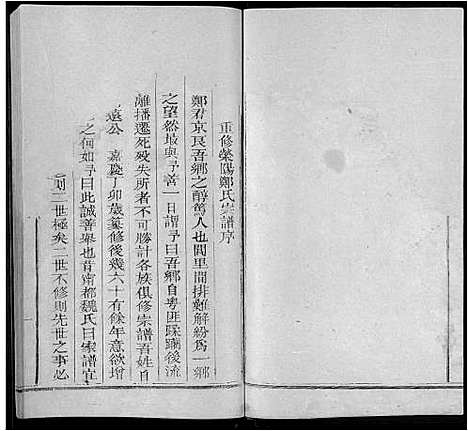 重修滎陽鄭氏宗譜序
鄭君京良吾鄉之醇篤人也閭里間排難解紛爲一鄉
之望然最與予善一日謂予曰吾鄉自粵匪蹂躪後流
離播遷死殁失所者不可勝計各族俱修宗譜吾姓自
遠公 嘉慶丁卯歲纂修後幾六十有餘年意欲增
之何如予曰此誠善舉也昔南都魏氏曰家譜宜
則二世極矣二世不修則先世之事必